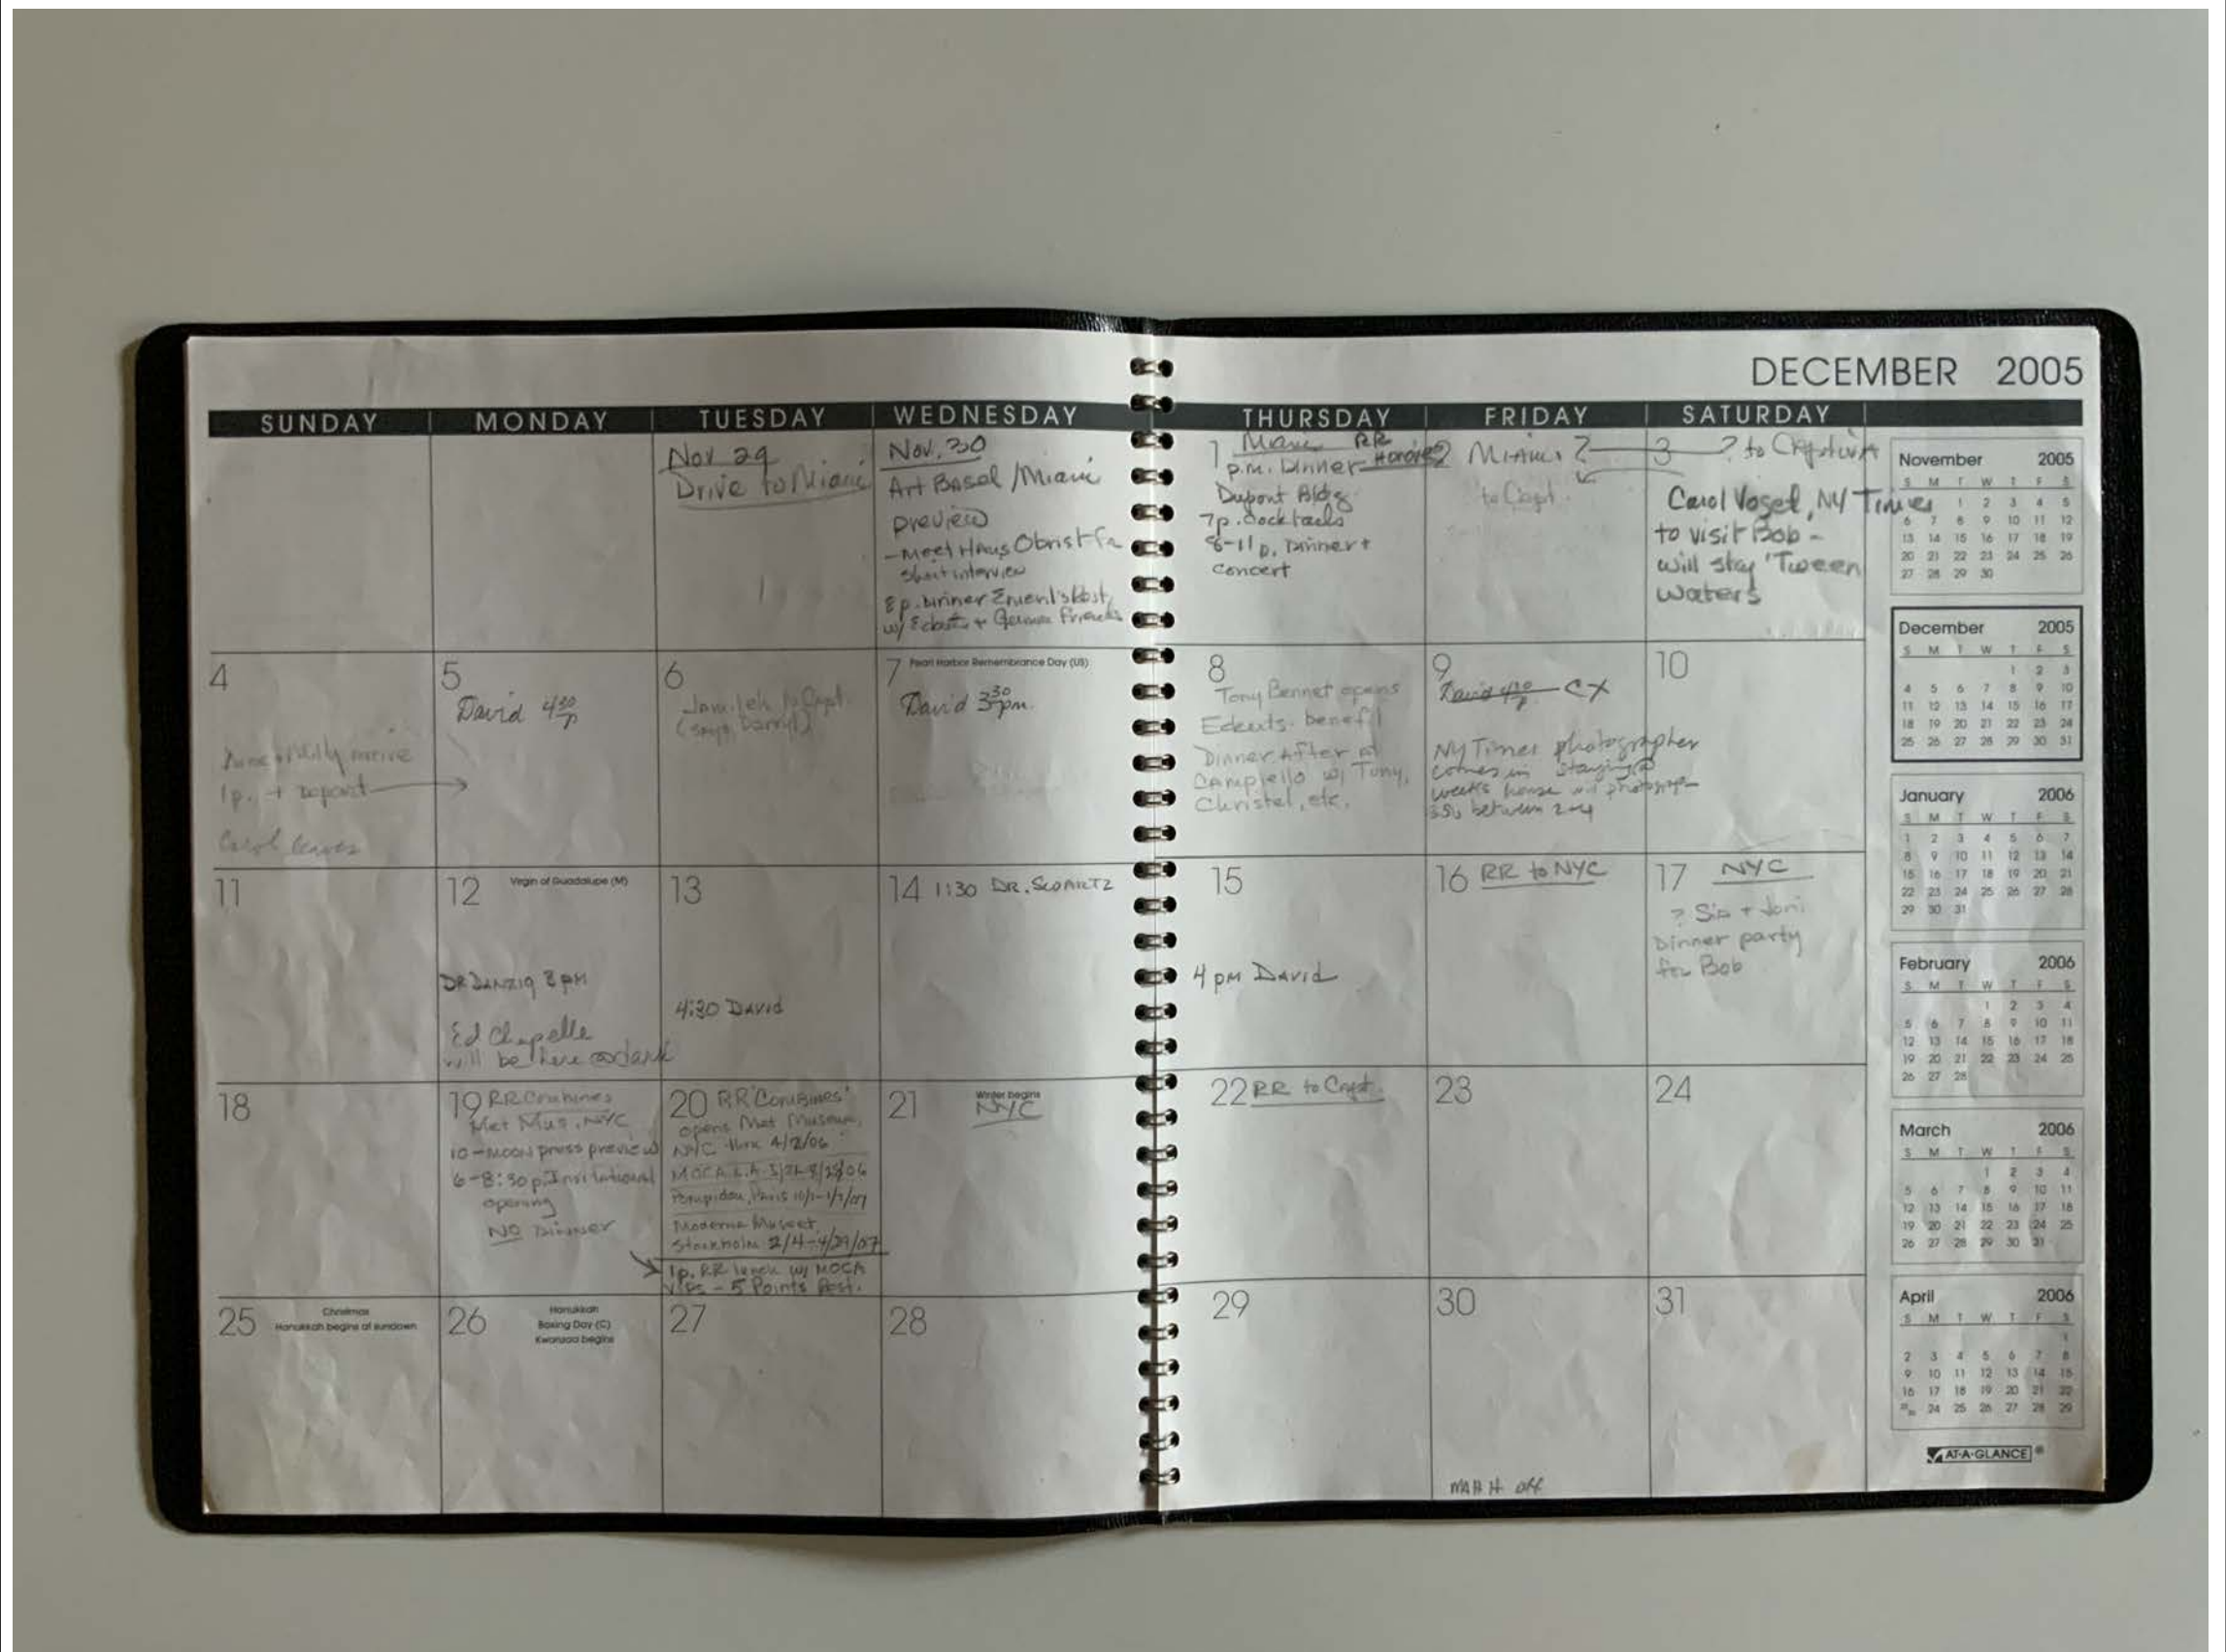 DECEMBER 2005
SUNDAY MONDAY TUESDAY WEDNESDAY THURSDAY FRIDAY SATURDAY
Nov 29
Drive to Miami
Nov. 30
Art Basel / Miami
preview
- Meet Haus Obrist for
short interview
8 p. Dinner
w/ + German Friends
1 Miami RR
p.m. Dinner Honoree
Dupont Bldg
7p. Cocktails
8-11 p. Dinner +
concert
2 Miami ?
to Capt.
3 ? to Captiva
Carol Vogel, NY Times
to visit Bob -
will stay 'Tween
Waters
4
arrive
1p. + Depart
Carol leaves
5
David 4:30 p
6
to Capt.
(says Darryl)
7 Pearl Harbor Remembrance Day (US)
David 3:30 pm.
8
Tony Bennet opens
benefit
Dinner After at
Campiello w/ Tony,
Christel, etc.
9
David 4:30 p CX
NY Times photographer
comes in staying @
weeks house will photograph
between 2-4
10
11
12 Virgin of Guadalupe (M)
DR DANZIG 3 PM
Ed Chapelle
will be here @ dark
13
4:30 DAVID
14 1:30 DR. SWARTZ
15
4 PM DAVID
16 RR to NYC
17 NYC
? Sip + Joni
Dinner party
for Bob
18
19 RR Combines
Met Mus, NYC
10-NOON press preview
6-8:30 p. Invitational
opening
NO Dinner
20 RR 'Combines'
opens Met Museum,
NYC thru 4/2/06
MOCA L.A.
Pompidou, Paris
Moderna Museet,
Stockholm 2/4-4/29/07
1p. RR lunch w/ MOCA
VIPs - 5 Points Rest.
21 Winter begins
NYC
22 RR to Capt.
23
24
25 Christmas
Hanukkah begins at sundown
26 Hanukkah
Boxing Day (C)
Kwanzaa begins
27
28
29
30
MARK H off
31
November 2005
S M T W T F S
1 2 3 4 5
6 7 8 9 10 11 12
13 14 15 16 17 18 19
20 21 22 23 24 25 26
27 28 29 30
December 2005
S M T W T F S
1 2 3
4 5 6 7 8 9 10
11 12 13 14 15 16 17
18 19 20 21 22 23 24
25 26 27 28 29 30 31
January 2006
S M T W T F S
1 2 3 4 5 6 7
8 9 10 11 12 13 14
15 16 17 18 19 20 21
22 23 24 25 26 27 28
29 30 31
February 2006
S M T W T F S
1 2 3 4
5 6 7 8 9 10 11
12 13 14 15 16 17 18
19 20 21 22 23 24 25
26 27 28
March 2006
S M T W T F S
1 2 3 4
5 6 7 8 9 10 11
12 13 14 15 16 17 18
19 20 21 22 23 24 25
26 27 28 29 30 31
April 2006
S M T W T F S
1
2 3 4 5 6 7 8
9 10 11 12 13 14 15
16 17 18 19 20 21 22
23/30 24 25 26 27 28 29
AT-A-GLANCE®